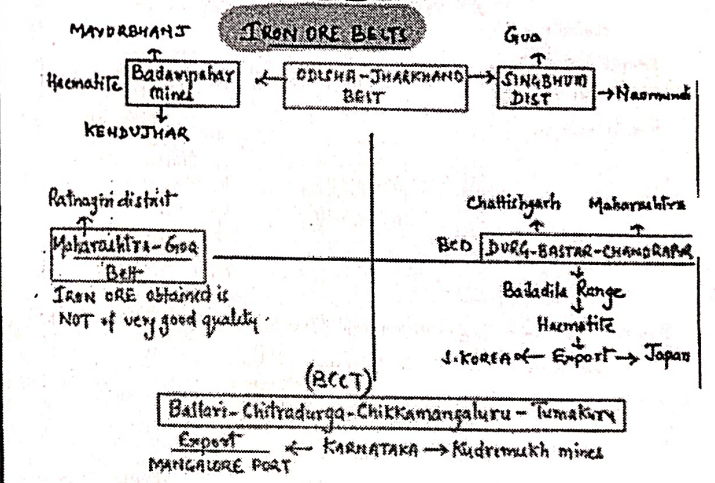 IRON ORE BELTS
MAYURBHANJ
Haematite
Badampahar
Mines
KENDUJHAR
ODISHA-JHARKHAND
BELT
Gua
SINGBHUM
DIST
Noamundi
Ratnagiri district
Maharashtra-Goa
Belt
IRON ORE obtained is
NOT of very good quality.
Chattishgarh Maharashtra
BCD DURG-BASTAR-CHANDRAPUR
Bailadila Range
Haematite
S.KOREA ← Export → Japan
(BCCT)
Ballari-Chitradurga-Chikkamangaluru-Tumakuru
Export ← KARNATAKA → Kudremukh mines
MANGALORE PORT